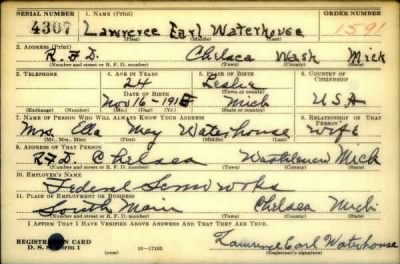 SERIAL NUMBER 1. NAME (Print) ORDER NUMBER
4307 Lawrence Earl Waterhouse 1591
(First) (Middle) (Last)
2. ADDRESS (Print)
R.F.D. Chelsea Wash Mich
(Number and street or R. F. D. number) (Town) (County) (State)
3. TELEPHONE 4. AGE IN YEARS 5. PLACE OF BIRTH 6. COUNTRY OF CITIZENSHIP
24 Leslie
DATE OF BIRTH (Town or county)
Nov 16-1915 Mich USA
(Exchange) (Number) (Mo.) (Day) (Yr.) (State or country)
7. NAME OF PERSON WHO WILL ALWAYS KNOW YOUR ADDRESS 8. RELATIONSHIP OF THAT PERSON
Mrs. Ella May Waterhouse wife
(Mr., Mrs., Miss) (First) (Middle) (Last)
9. ADDRESS OF THAT PERSON
RFD Chelsea Washtenaw Mich
(Number and street or R. F. D. number) (Town) (County) (State)
10. EMPLOYER'S NAME
Federal Screw works
11. PLACE OF EMPLOYMENT OR BUSINESS
South Main Chelsea Mich
(Number and street or R. F. D. number) (Town) (County) (State)
I AFFIRM THAT I HAVE VERIFIED ABOVE ANSWERS AND THAT THEY ARE TRUE.
REGISTRATION CARD
D. S. S. Form 1 Lawrence Earl Waterhouse
(Registrant's signature)